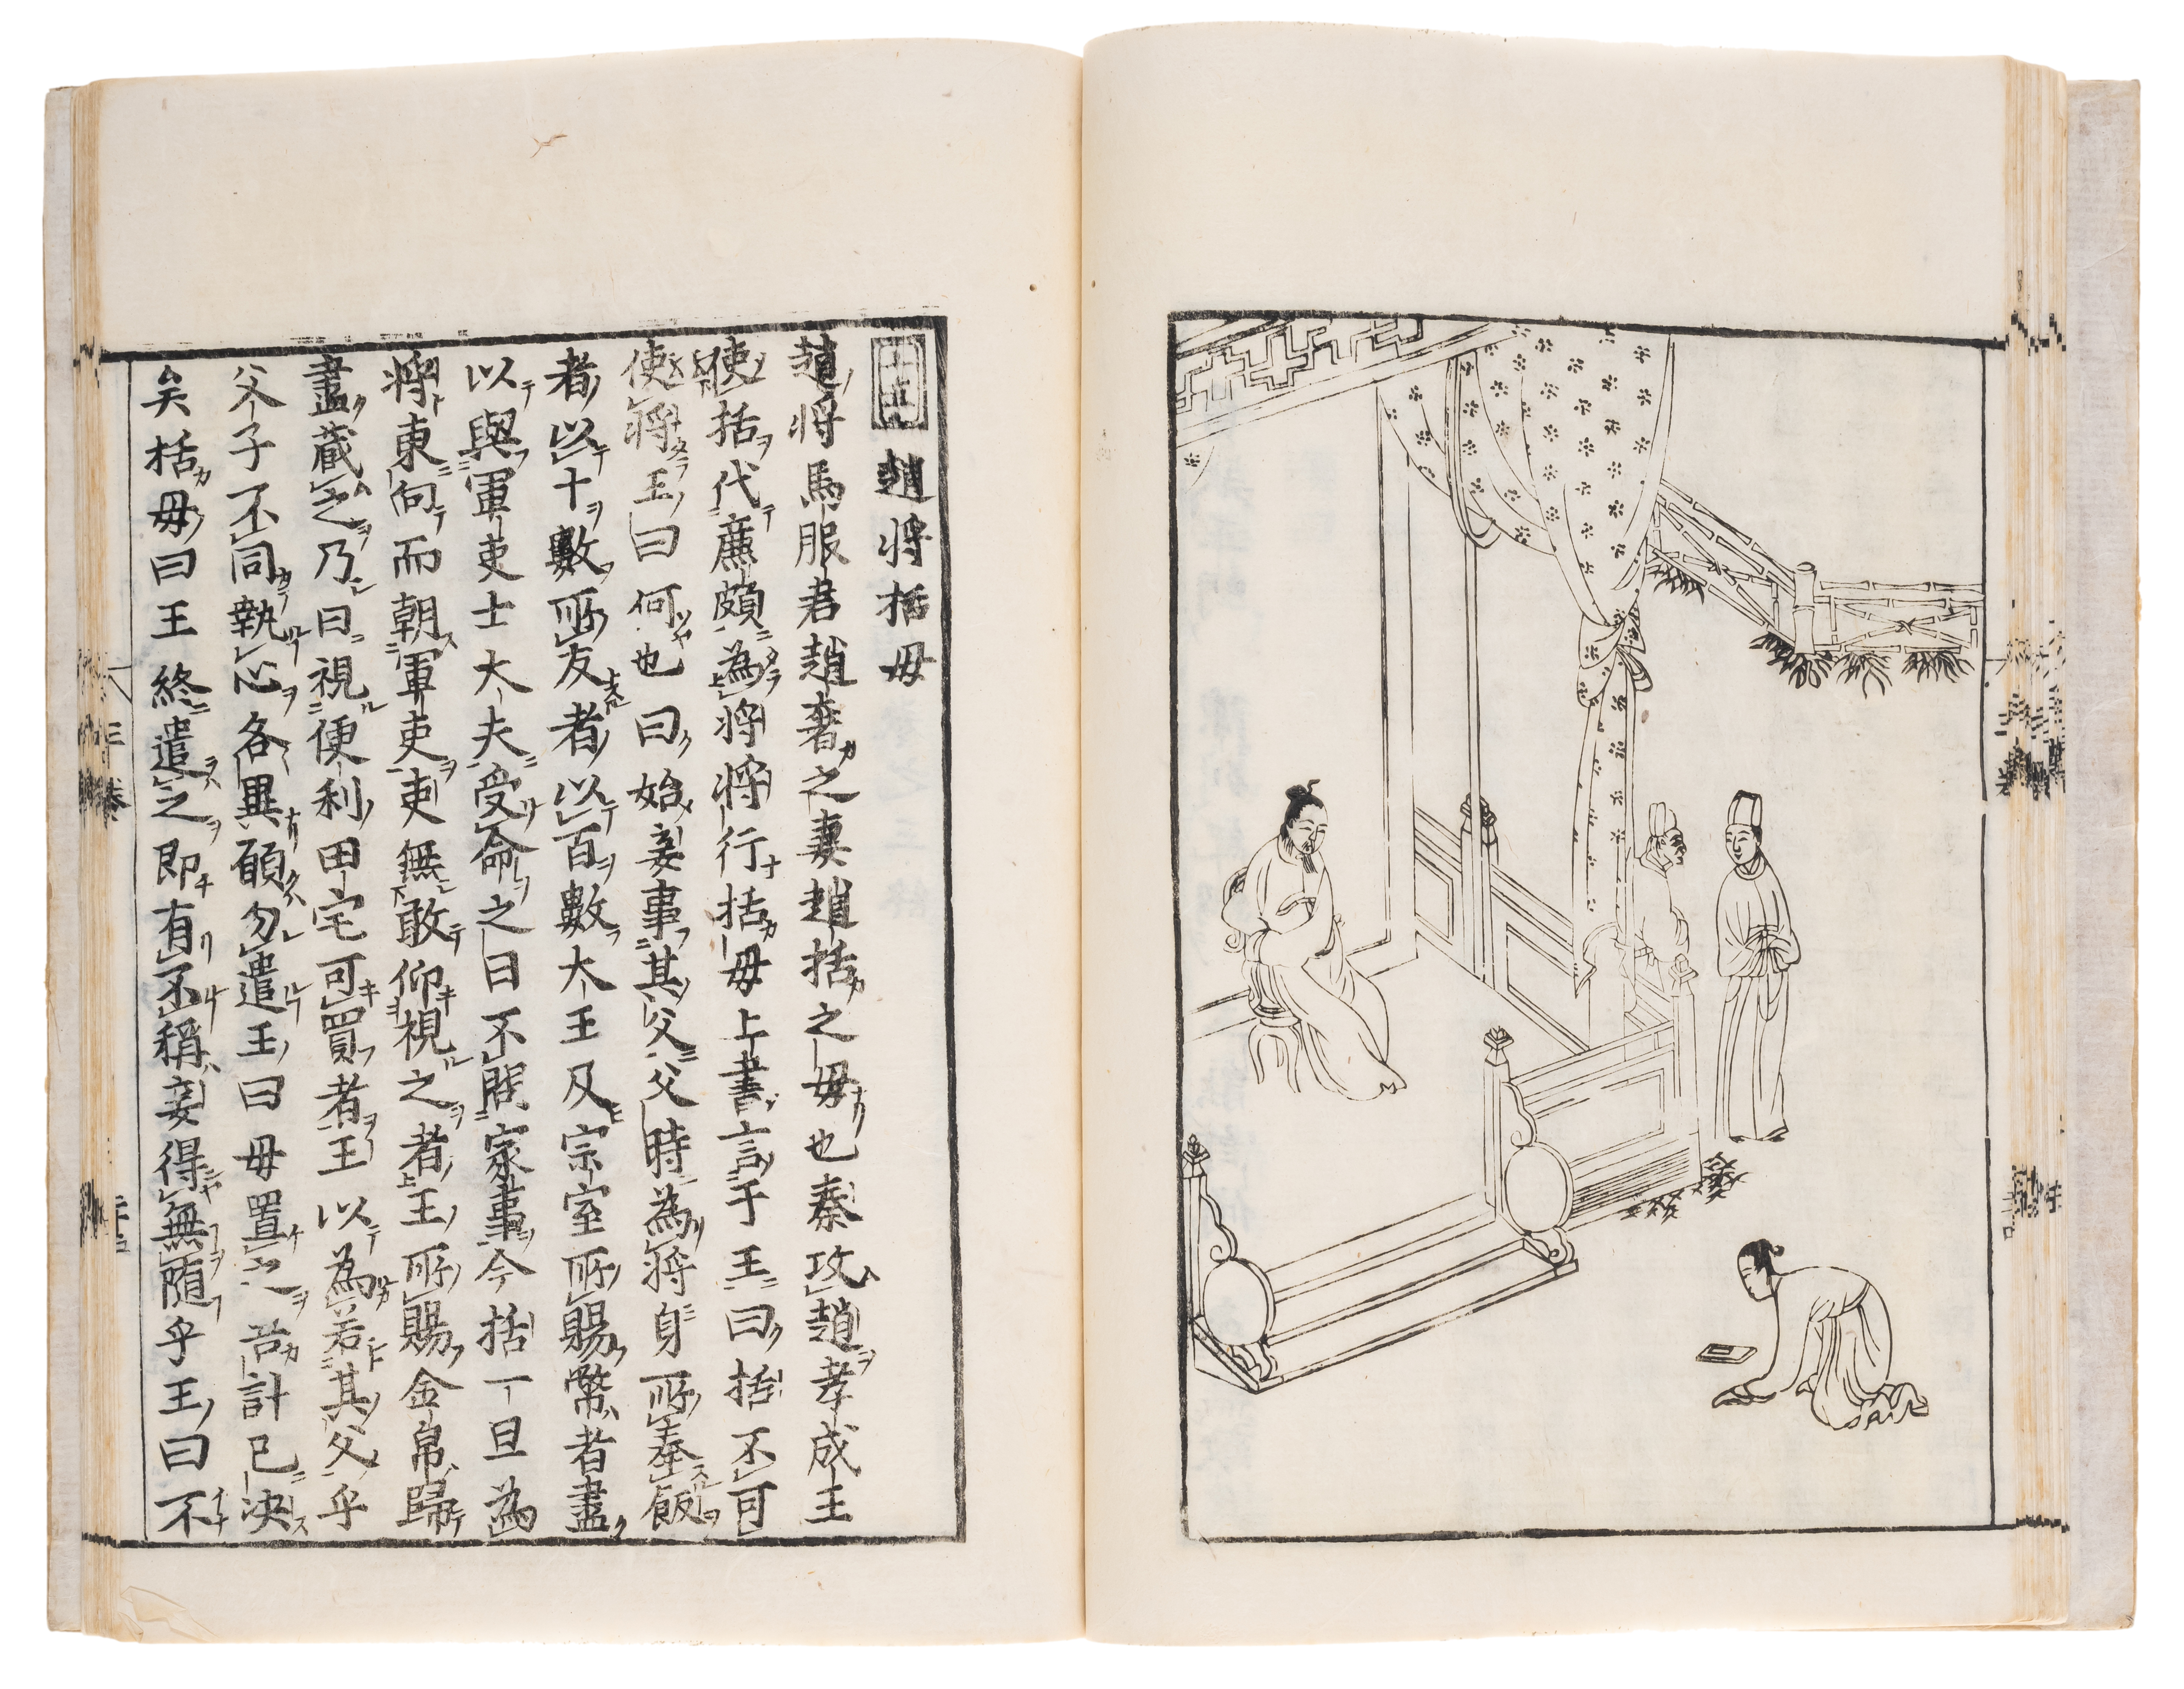 十五
趙将括毋
趙将馬服君趙奢之妻趙括之毋也秦攻趙孝成王
使括代廉頗為将将行括毋上書言于王曰括不可
使将王曰何也曰始妾事其父父時為将身所奉飯
者以十數所友者以百數大王及宗室所賜幣者盡
以與軍吏士大夫受命之日不問家事今括一旦為
将東向而朝軍吏吏無敢仰視之者王所賜金帛歸
盡蔵之乃日視便利田宅可買者王以為若其父乎
父子不同執心各異願勿遣王曰毋置之吾計已決
矣括毋曰王終遣之即有不稱妾得無随乎王曰不